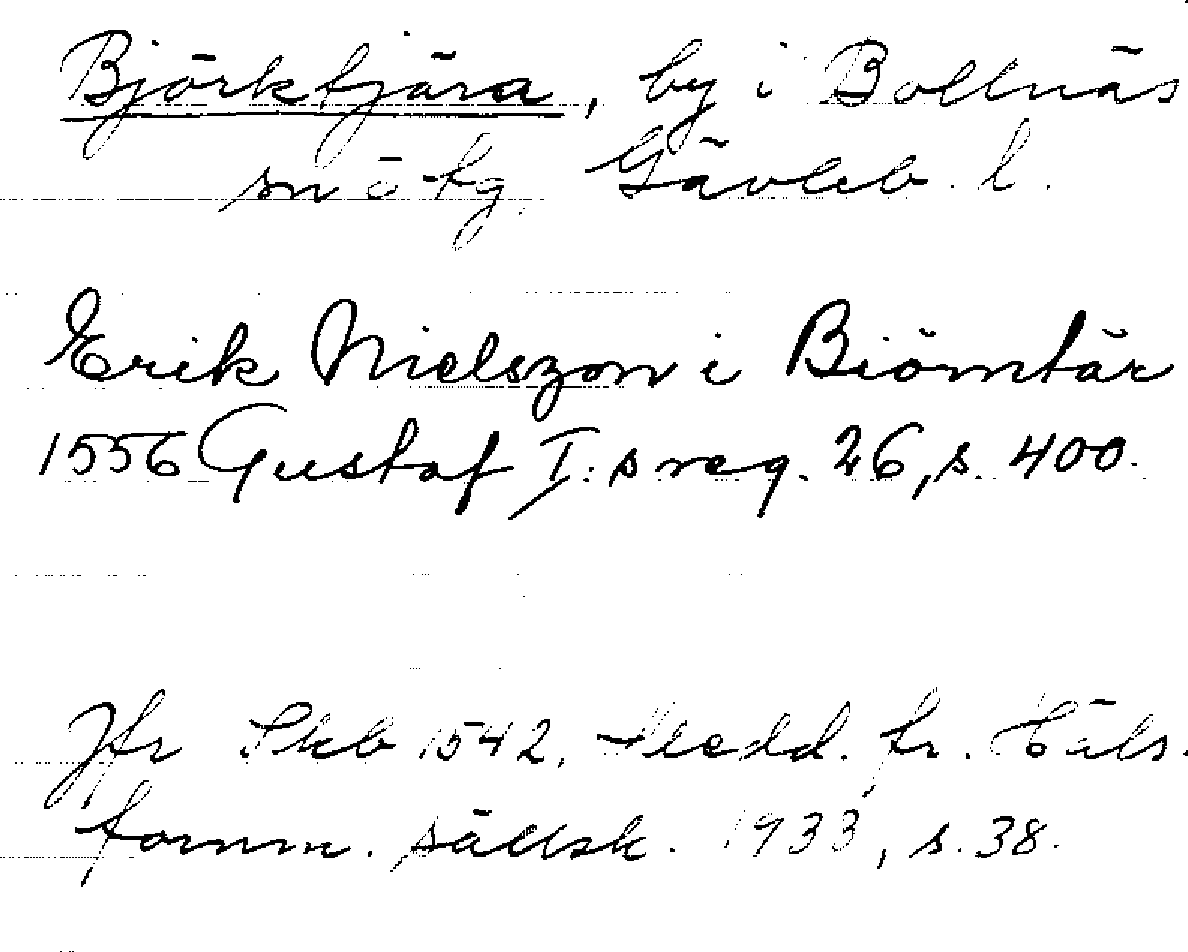 Björktjära, by i Bollnäs
sn o tg, Gävleb. l.
Erik Nielszon i Biörntär
1556 Gustaf I:s reg. 26, s. 400.
Jfr Skb 1542, Medd. fr. Häls.
fornm. sällsk. 1933, s. 38.